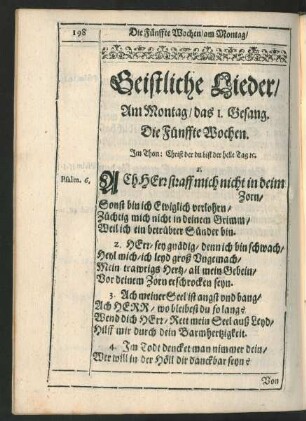 198
Die Fünffte Wochen/am Montag/
Geistliche Lieder/
Am Montag/das 1. Gesang.
Die Fünffte Wochen.
Im Thon: Christ der du bist der helle Tag ꝛc.
1.
Psalm. 6.
ACh HErr straff mich nicht in deim
Zorn/
Sonst bin ich Ewiglich verlohrn/
Züchtig mich nicht in deinem Grimm/
Weil ich ein betrübter Sünder bin.
2. HErr/sey gnädig/denn ich bin schwach/
Heyl mich/ich leyd groß Ungemach/
Mein trawrigs Hertz/all mein Gebein/
Vor deinem Zorn erschrocken seyn.
3. Ach meiner Seel ist angst und bang/
Ach HERR/wo bleibest du so lang?
Wend dich HErr/Rett mein Seel auß Leyd/
Hilff mir durch dein Barmhertzigkeit.
4. Im Todt dencket man nimmer dein/
Wer will in der Höll dir danckbar seyn?
Von